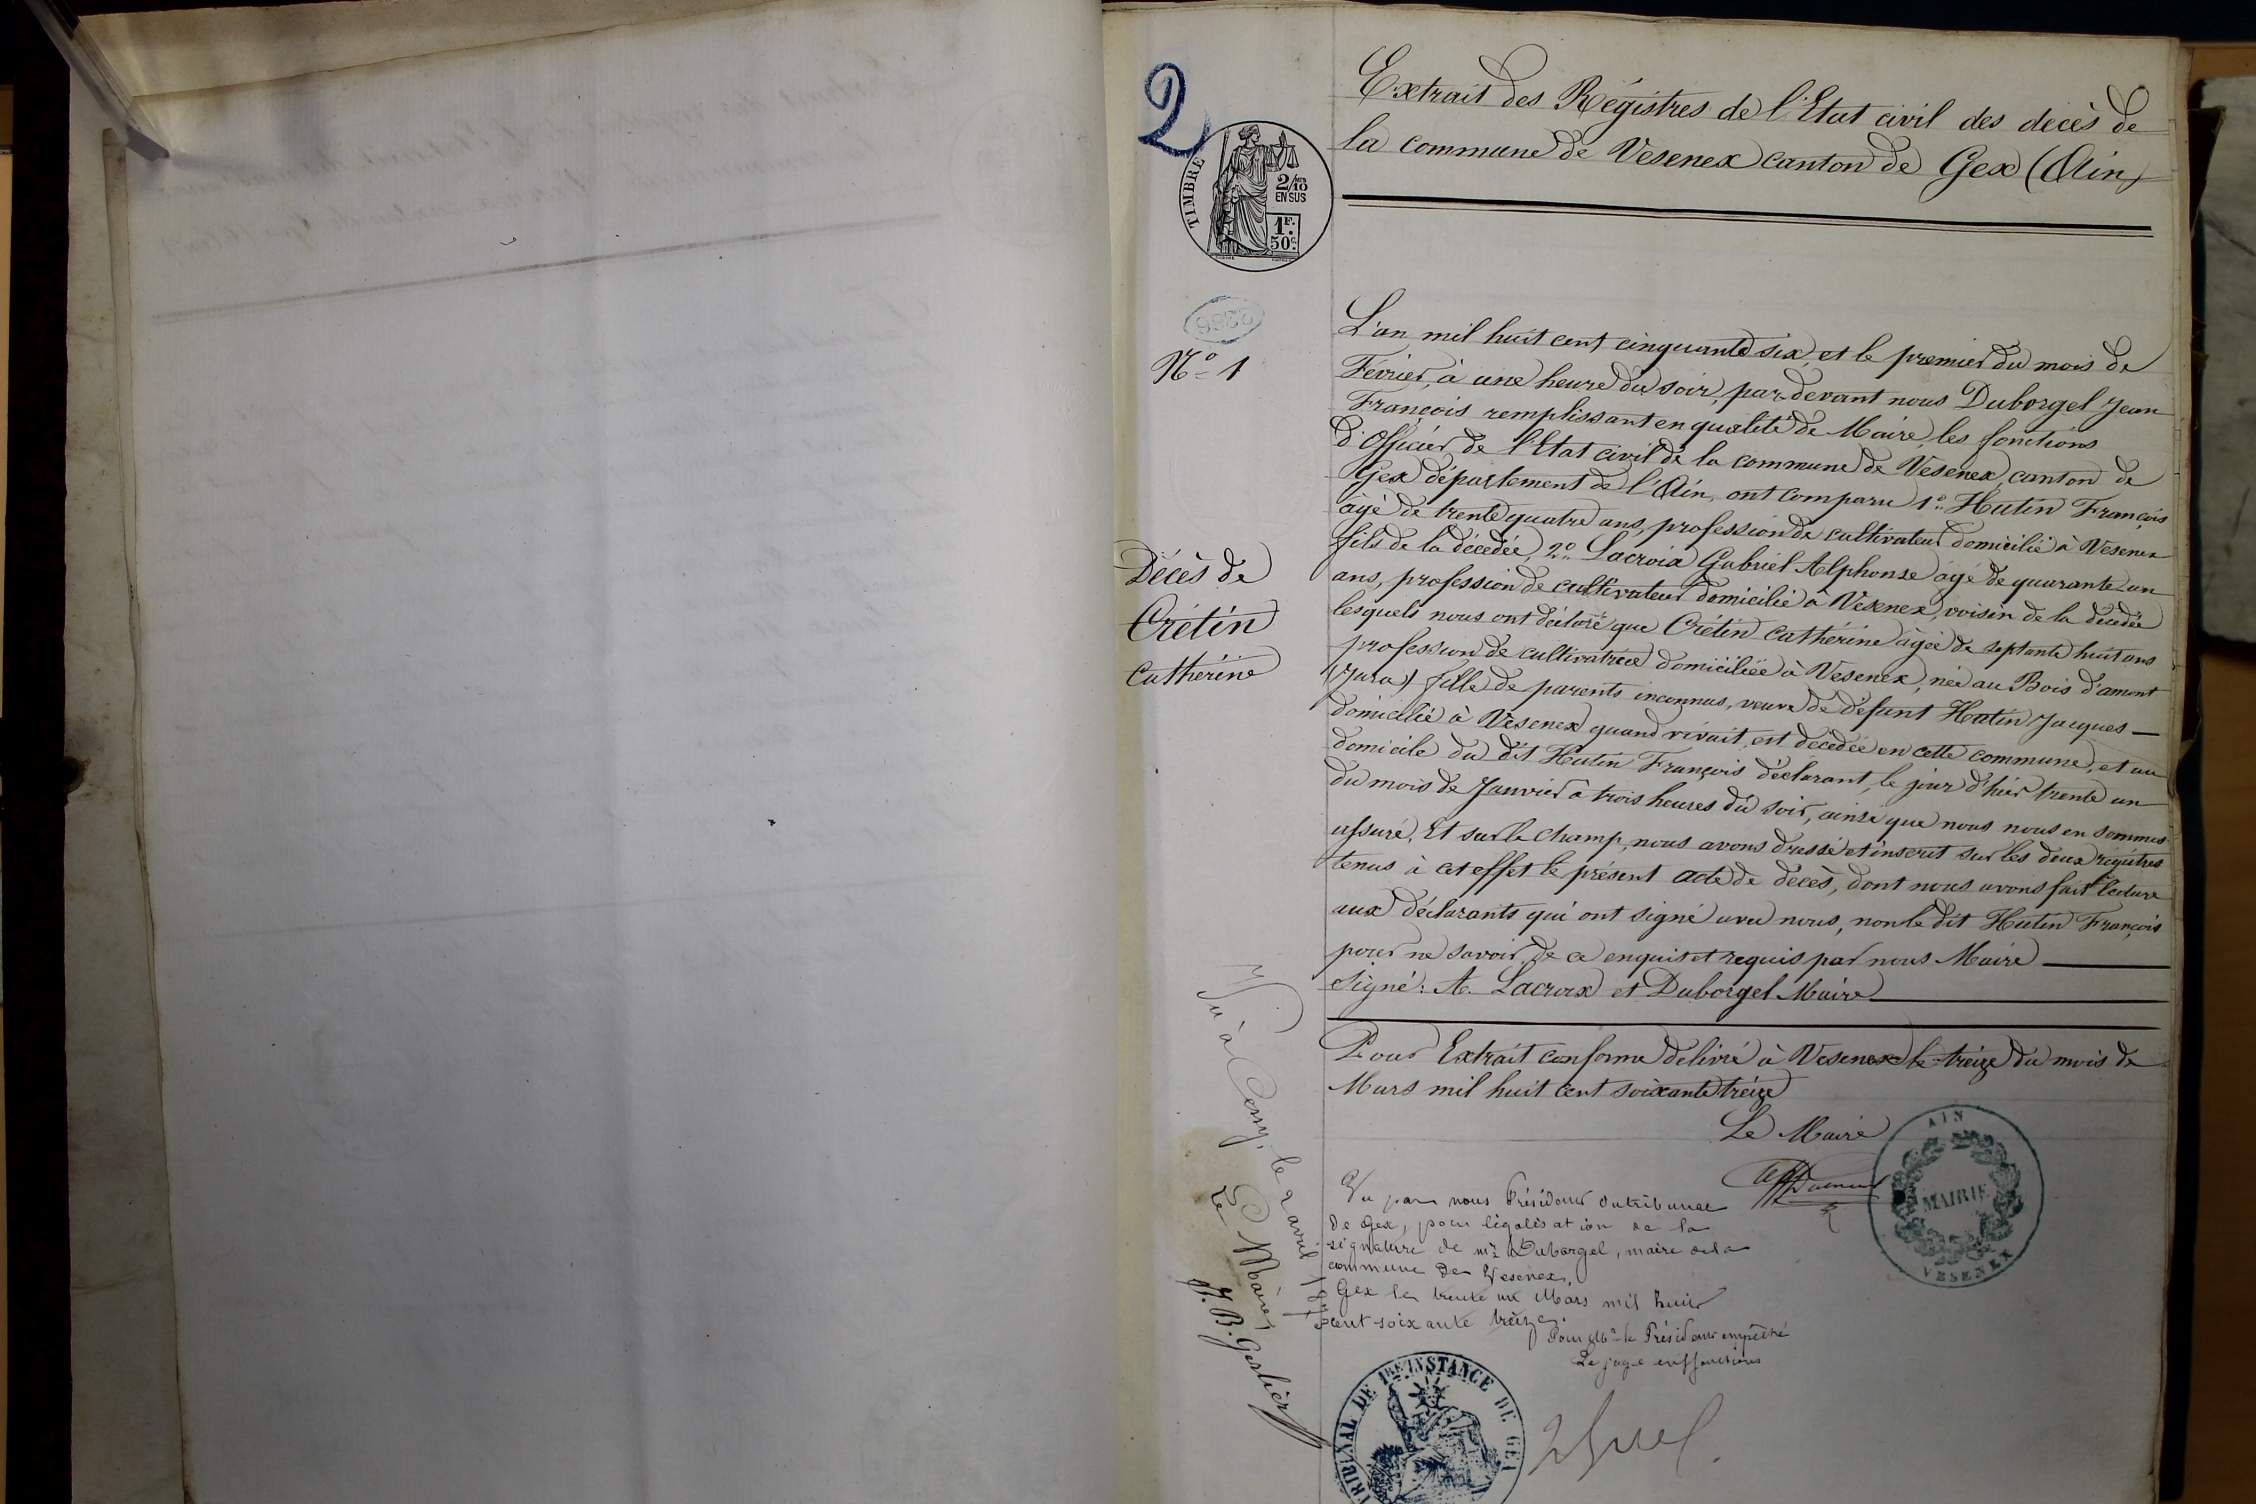 2
TIMBRE
2/10
EN SUS
1F.
50c.
2366
Extrait des Régistres de l'Etat civil des décès de
la commune de Vesenex canton de Gex (Ain)
No 1
L'an mil huit cent cinquante six, et le premier du mois de
Février, à une heure du soir, par-devant nous Duborgel Jean
François remplissant en qualité de Maire, les fonctions
d'Officier de l'Etat civil de la commune de Vesenex, canton de
Gex département de l'Ain, ont comparu 1o Hutin François
âgé de trente quatre ans, profession de cultivateur domicilié à Vesenex
fils de la décédée, 2o Lacroix Gabriel Alphonse âgé de quarante un
ans, profession de cultivateur domicilié à Vesenex, voisin de la décédée
lesquels nous ont déclaré que Crétin Cathérine âgée de septante huit ans
profession de cultivatrice domiciliée à Vesenex, née au Bois d'amont
(Jura) fille de parents inconnus, veuve de défunt Hutin Jacques
domicilié à Vesenex quand vivait, est décédée en cette commune, et au
domicile du dit Hutin François déclarant, le jour d'hier trente un
du mois de Janvier à trois heures du soir, ainsi que nous nous en sommes
assuré, Et sur le champ, nous avons dressé et inscrit sur les deux régistres
tenus à cet effet le présent acte de décès, dont nous avons fait lecture
aux déclarants qui ont signé avec nous, non le dit Hutin François
pour ne savoir, de ce enquis et requis par nous Maire
Signé: A. Lacroix et Duborgel Maire
Décès de
Crétin
Cathérine
Pour Extrait conforme délivré à Vesenex le treize du mois de
Mars mil huit cent soixante treize
Le Maire
AIN
MAIRIE
VESENEX
Vu par nous Président du tribunal
de Gex, pour légalisation de la
signature de mr Duborgel, maire de la
commune de Vesenex.
Gex le trente un Mars mil huit
cent soixante treize.
Pour Mr le Président empêché
Le juge en fonctions
TRIBUNAL DE 1RE INSTANCE DE GEX
Vu à Cessy, le 2 avril 1873
Le Maire
J. B. Gerlier